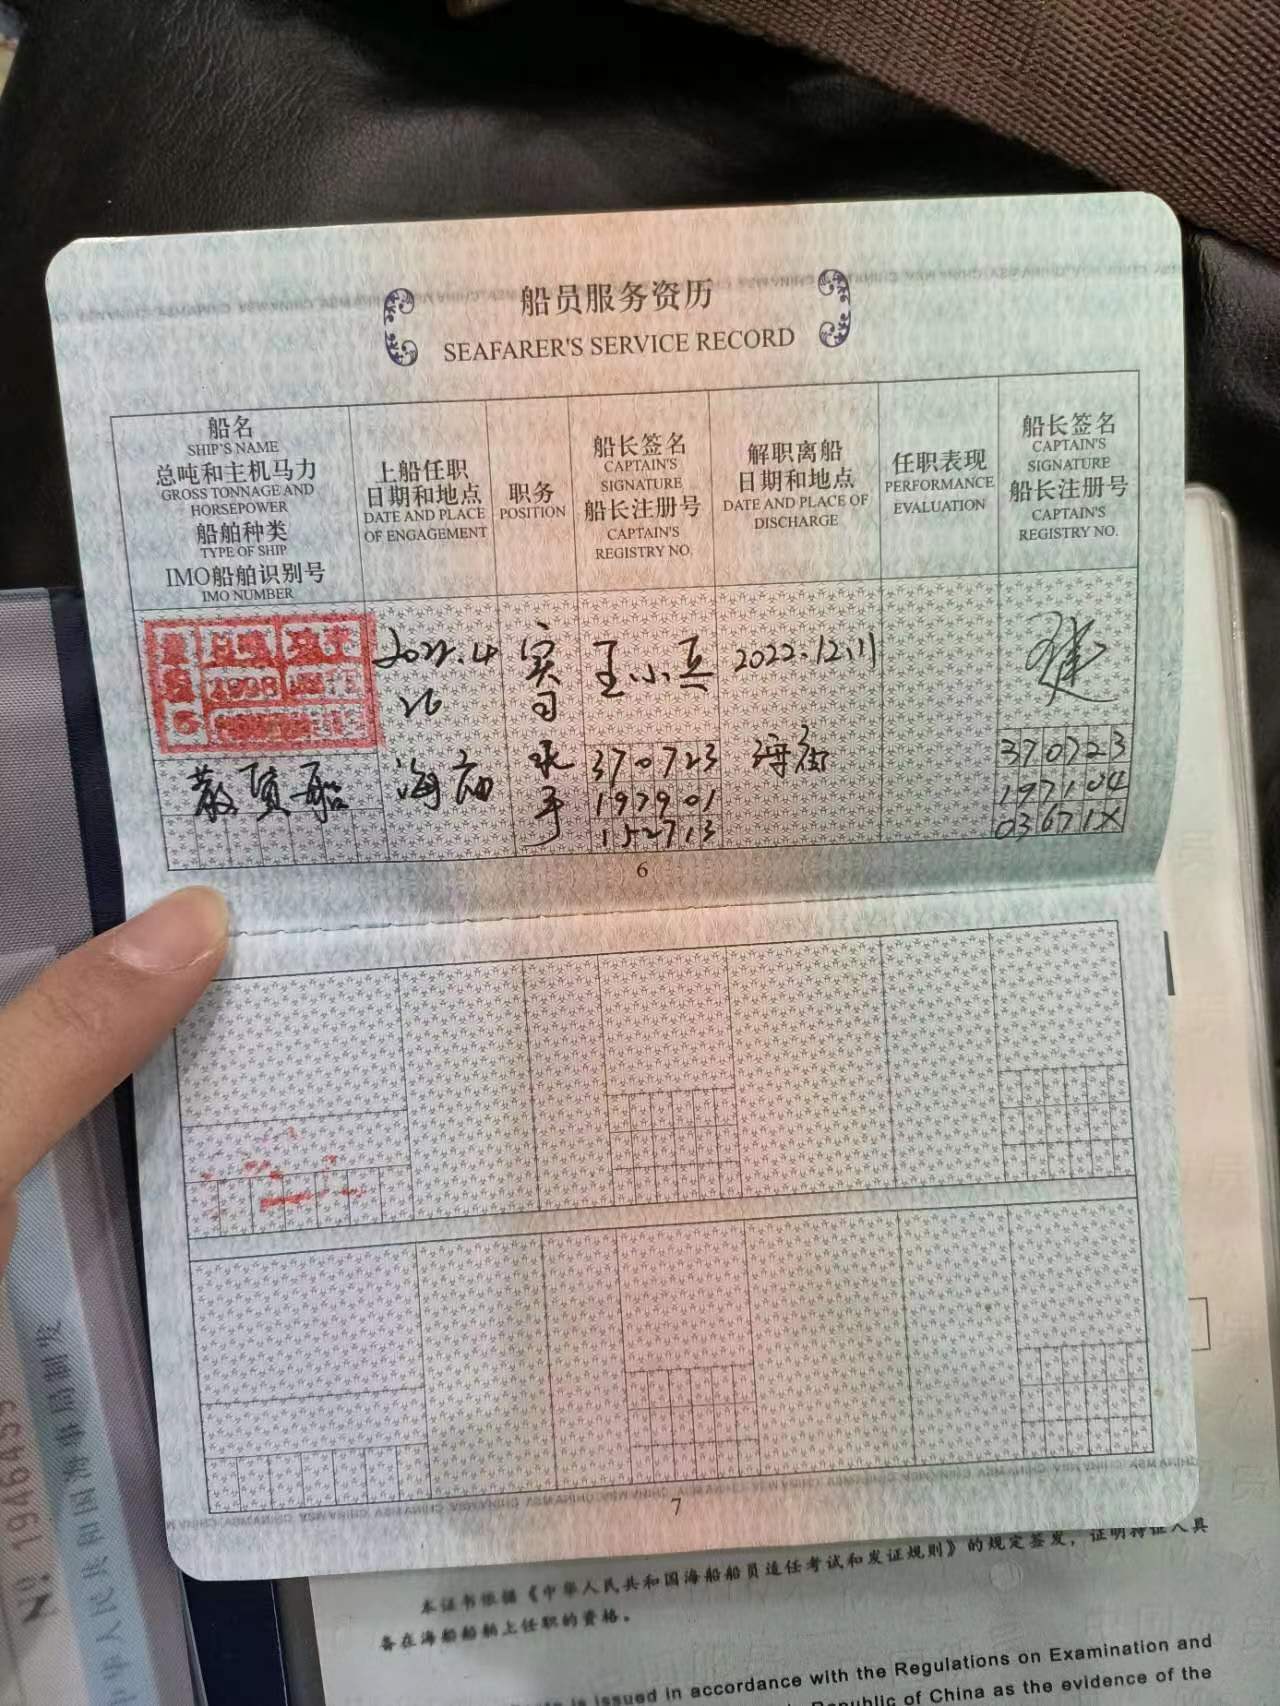 船员服务资历
SEAFARER'S SERVICE RECORD
船名
SHIP'S NAME
总吨和主机马力
GROSS TONNAGE AND
HORSEPOWER
船舶种类
TYPE OF SHIP
IMO船舶识别号
IMO NUMBER
上船任职
日期和地点
DATE AND PLACE
OF ENGAGEMENT
职务
POSITION
船长签名
CAPTAIN'S
SIGNATURE
船长注册号
CAPTAIN'S
REGISTRY NO.
解职离船
日期和地点
DATE AND PLACE OF
DISCHARGE
任职表现
PERFORMANCE
EVALUATION
船长签名
CAPTAIN'S
SIGNATURE
船长注册号
CAPTAIN'S
REGISTRY NO.
总吨
1998
散货船
2022.4
26
海
实
习
水
手
王小兵
370723
197901
152713
2022.12.11
370723
197104
03671X
6
7
CHINA MSA
№ 1946455
中华人民共和国海事局制发
本证书依据《中华人民共和国海船船员适任考试和发证规则》的规定签发，证明持证人具
备在海船船舶上任职的资格。
is issued in accordance with the Regulations on Examination and
Republic of China as the evidence of the